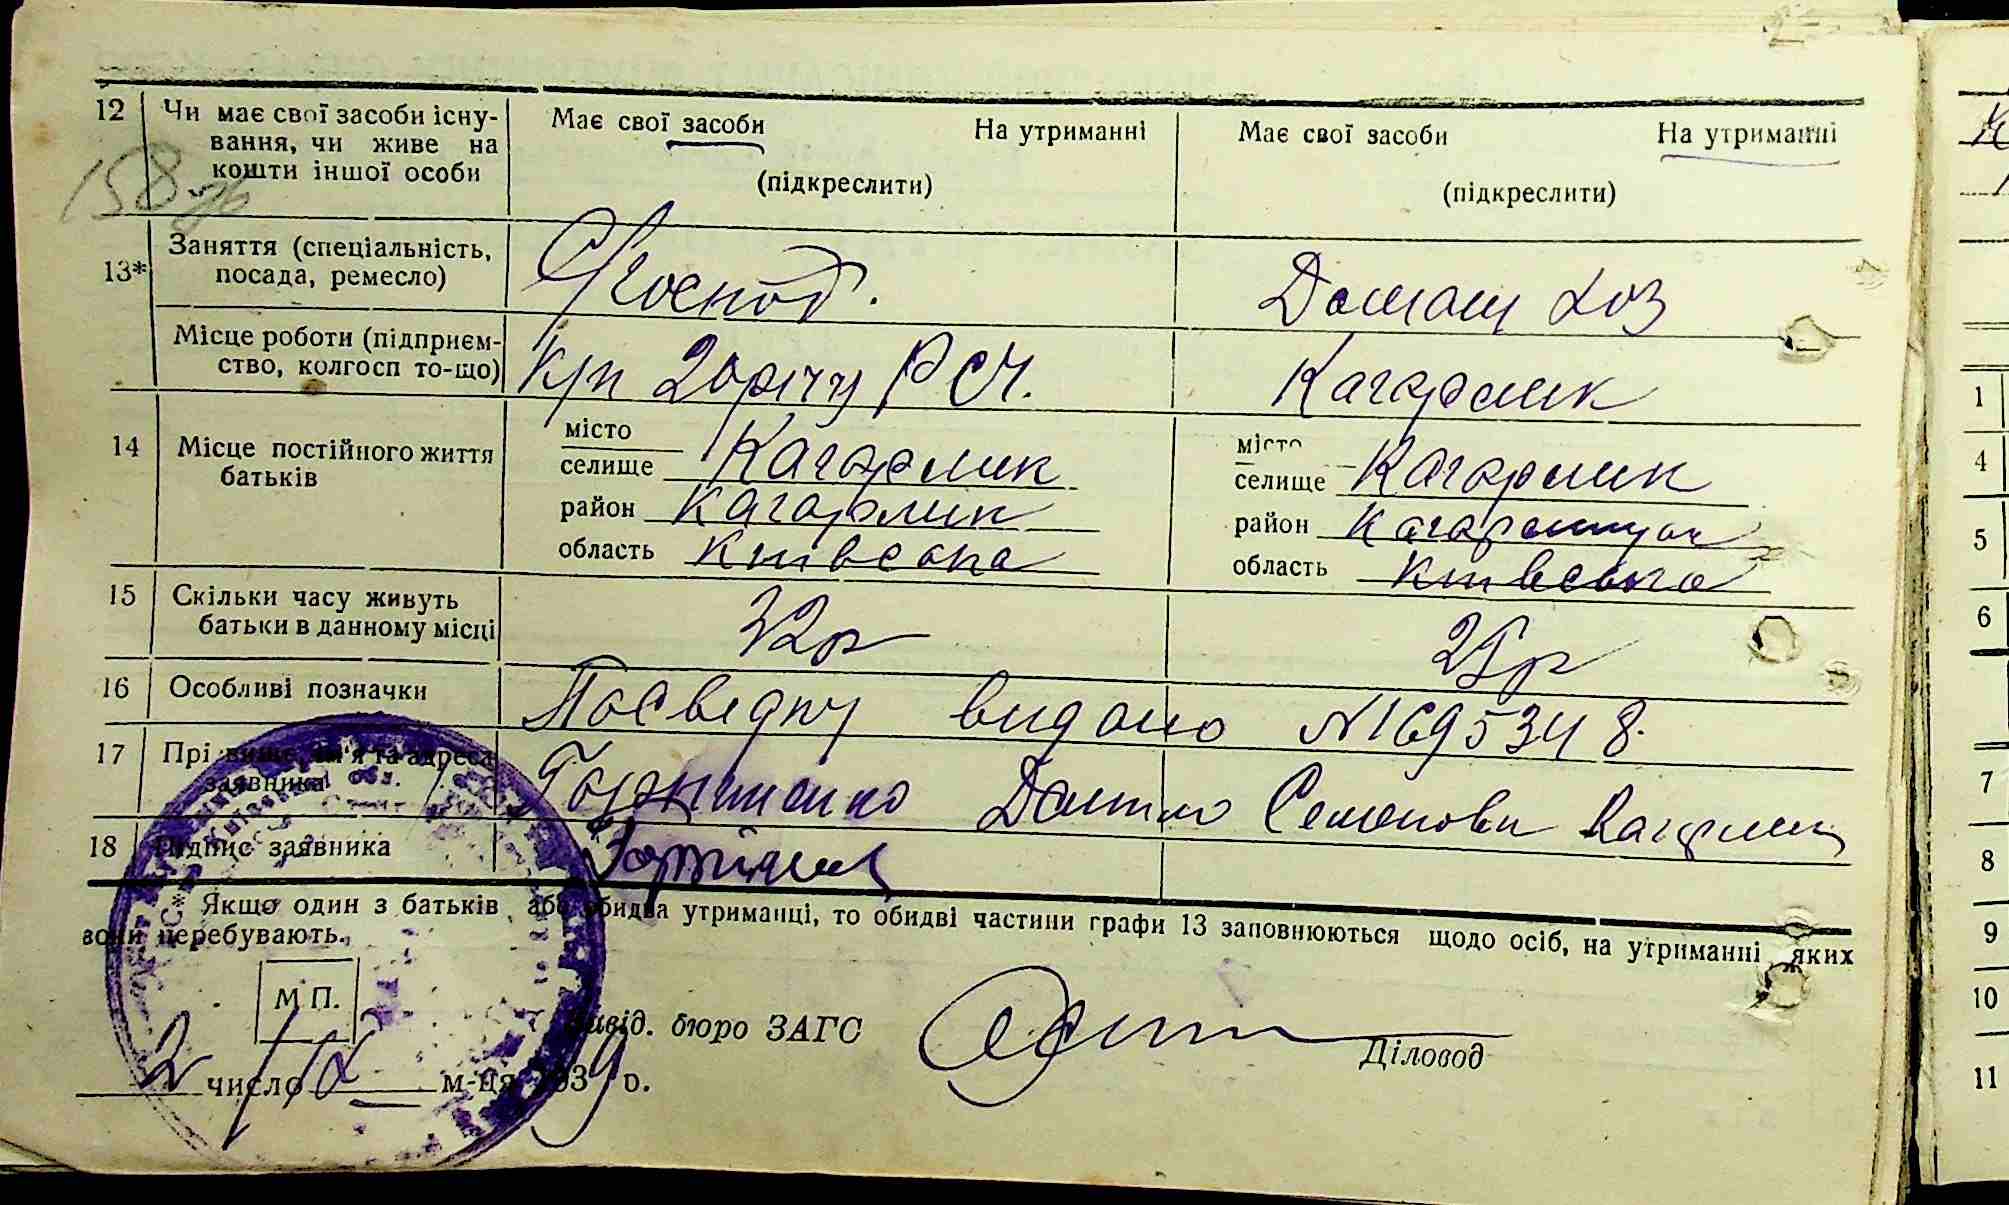 12 Чи має свої засоби існу-
вання, чи живе на
кошти іншої особи
Має свої засоби На утриманні
(підкреслити)
Має свої засоби На утриманні
(підкреслити)
158
13* Заняття (спеціальність,
посада, ремесло)
Домаш хоз
Місце роботи (підприєм-
ство, колгосп то-що)
Кагарлик
14 Місце постійного життя
батьків
місто
селище Кагарлик
район Кагарлик
область Київська
місто
селище Кагарлик
район
область Київська
15 Скільки часу живуть
батьки в данному місці
32р
25р
16 Особливі позначки
Посведку видано N1695348.
17 Прі вище, ім'я та адреса
заявника
Данило Семенович Кагарлик
18 Підпис заявника
Якщо один з батьків, або обидва утриманці, то обидві частини графи 13 заповнюються щодо осіб, на утриманні яких
вони перебувають.
М П.
Завід. бюро ЗАГС
Діловод
2 число м-ця 1939 р.
1
4
5
6
7
8
9
10
11